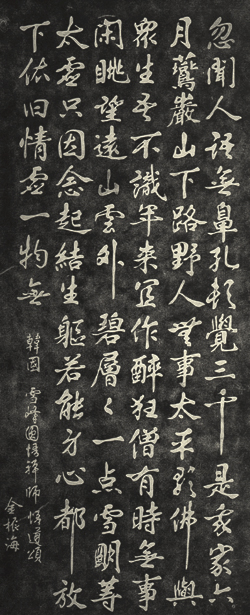 忽聞人語無鼻孔頓覺三千是我家六
月鷰巖山下路野人無事太平歌佛與
衆生吾不識年来宜作醉狂僧有時無事
閑眺望遠山雲外碧層々一点雪明等
太虚只因念起結生軀若能方心都放
下依旧情虚一物無
韓国 雪峰圓悟禅師悟道頌
金根海